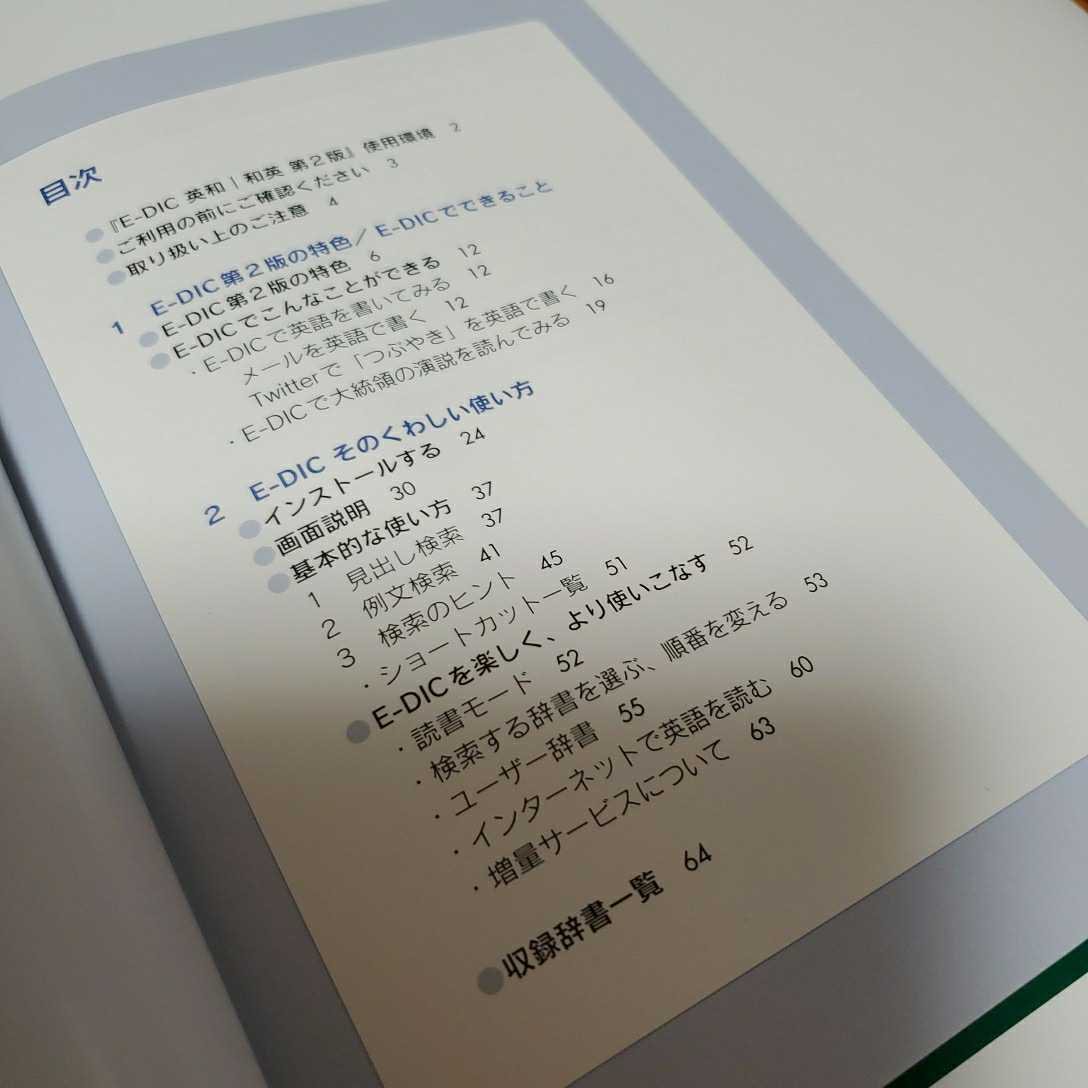 目次
『E-DIC 英和｜和英 第2版』使用環境 2
ご利用の前にご確認ください 3
取り扱い上のご注意 4
1 E-DIC第2版の特色／E-DICでできること
E-DIC第2版の特色 6
E-DICでこんなことができる 12
・E-DICで英語を書いてみる 12
メールを英語で書く 12
Twitterで「つぶやき」を英語で書く 16
・E-DICで大統領の演説を読んでみる 19
2 E-DIC そのくわしい使い方
インストールする 24
画面説明 30
基本的な使い方 37
1 見出し検索 37
2 例文検索 41
3 検索のヒント 45
・ショートカット一覧 51
E-DICを楽しく、より使いこなす 52
・読書モード 52
・検索する辞書を選ぶ、順番を変える 53
・ユーザー辞書 55
・インターネットで英語を読む 60
・増量サービスについて 63
収録辞書一覧 64